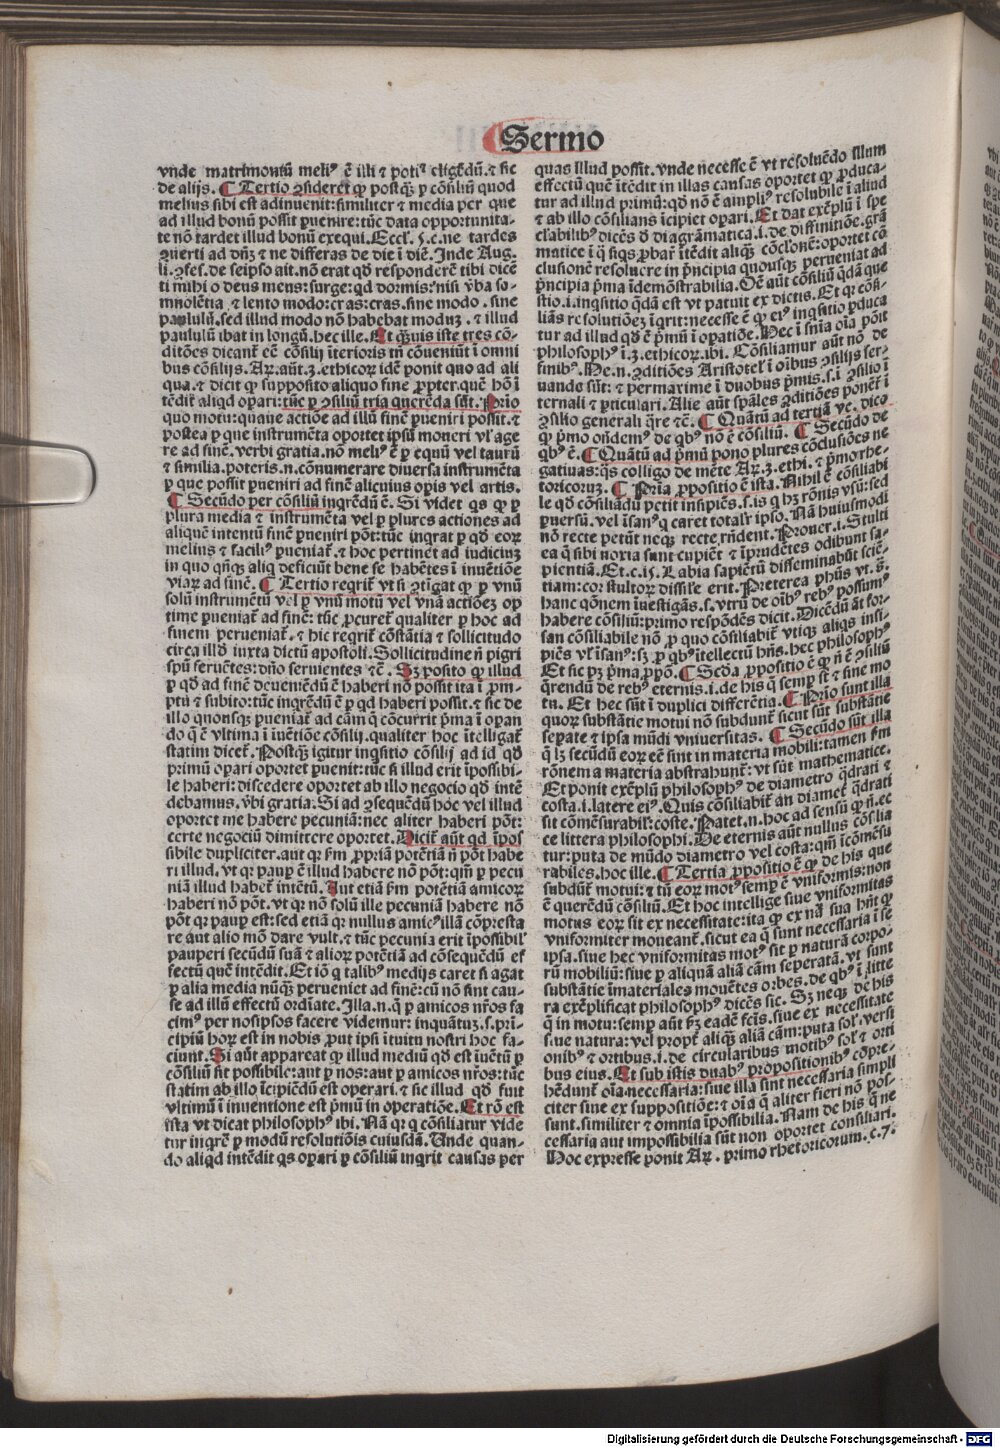 Sermo
vnde matrimoniũ meliꝰ ē illi ⁊ potiꝰ eligẽdũ.⁊ sic
de alijs. ¶ Tertio ꝯsideret̃ ꝙ postq̃ꝫ ꝑ cõsiliũ quod
melius sibi est adinuenit: similiter ⁊ media per que
ad illud bonũ possit ꝑuenire: tũc data opportunita-
te nõ tardet illud bonũ exequi. Eccl. 5. c. ne tardes
ꝯuerti ad dñꝫ ⁊ ne differas de die ī diē. Inde Aug.
li. ꝯfes. de seipso ait. nõ erat qd̃ responderē tibi dicē
ti mihi o deus meus: surge: qd dormis: nisi v̾ba so-
mnolẽtia ⁊ lento modo: cras: cras. sine modo. sine
paululũ. sed illud modo nõ habebat moduꝫ. ⁊ illud
paululũ ibat in longũ. hec ille. Et q̃ꝫuis iste tres cõ-
ditões dicant̃ eē cõsilij īterioris tñ cõueniũt ī omni
bus cõsilijs. Ar. aũt. 3. ethicoꝝ idē ponit quo ad ali
qua. ⁊ dicit ꝙ supposito aliquo fine ꝓpter quē hō ī
tẽdit aliqd oꝑari: tũc ꝑ ꝯsiliũ tria querẽda sũt. Prīo
quo motu: quaue actiõe ad illũ finē ꝑueniri possit. ⁊
postea ꝑ que instrumẽta oportet ipsũ moueri vl̾ age
re ad finē. verbi gratia. nõ meliꝰ ē ꝑ equũ vel taurũ
⁊ similia. poteris. n. cõnumerare diuersa instrumẽta
ꝑ que possit ꝑueniri ad finē alicuius oꝑis vel artis.
¶ Secũdo per cõsiliũ inqrẽdũ ē. Si videt qs ꝙ ꝑ
plura media ⁊ instrumẽta vel ꝑ plures actiones ad
aliquē intentũ finē ꝑueniri põt: tũc inqrat ꝑ qd̃ eoꝝ
melius ⁊ faciliꝰ ꝑueniat̃. ⁊ hoc pertinet ad iudiciuꝫ
in quo qñqꝫ aliq deficiũt bene se habẽtes ī inuẽtiõe
viaꝝ ad finē. ¶ Tertio reqrit̃ vt si ꝯtīgat ꝙ ꝑ vnũ
solũ instrumẽtũ vel ꝑ vnũ motũ vel vnã actiõeꝫ op
time ꝑueniat̃ ad finē: tũc ꝓcuret̃ qualiter ꝑ hoc ad
finem perueniat̃. ⁊ hic reqrit̃ cõstãtia ⁊ sollicitudo
circa illd̃ iuxta dictũ apostoli. Sollicitudine ñ pigri
spũ feruẽtes: dño seruientes ⁊c̃. Sꝫ posito ꝙ illud
ꝑ qd̃ ad finē deueniẽdũ ē haberi nõ possit ita ī ꝓm-
ptu ⁊ subito: tũc inqrẽdũ ē ꝑ qd haberi possit. ⁊ sic de
illo quousqꝫ ꝑueniat̃ ad cãm q̃ cõcurrit p̃ma ī oꝑan
do q̃ ē vltima ī iuẽtiõe cõsilij. qualiter hoc ītelligat̃
statim dicet̃. Postq̃ꝫ igitur inqsitio cõsilij ad id qd̃
primũ oꝑari oportet ꝑuenit: tũc si illud erit īpossibi-
le haberi: discedere oportet ab illo negocio qd̃ intẽ
debamus. v̾bi gratia. Si ad ꝯsequẽdũ hoc vel illud
oportet me habere pecuniã: nec aliter haberi põt:
certe negociũ dimittere oportet. Dicit̃ aũt qd īpos
sibile dupliciter. aut qꝛ ẜm ꝓpriã potẽtiã ñ põt habe
ri illud. vt qꝛ pauꝑ ē illud habere nõ põt: qm̃ ꝑ pecu
niã illud haberet̃ intẽtũ. Aut etiã ẜm potẽtiã amicoꝝ
haberi nõ põt. vt qꝛ nõ solũ ille pecuniã habere nõ
põt qꝛ pauꝑ est: sed etiã qꝛ nullus amicꝰ illã cõpresta
re aut alio mõ dare vult. ⁊ tũc pecunia erit īpossibil̾
pauperi secũdũ suã ⁊ alioꝝ potẽtiã ad cõsequẽdũ ef
fectũ quē intẽdit. Et iõ q talibꝰ medijs caret si agat
ꝑ alia media nũq̃ꝫ perueniet ad finē: cũ nõ sint cau-
se ad illũ effectũ ordīate. Illa. n. q̃ ꝑ amicos nr̃os fa
cimꝰ per nosipsos facere videmur: inquãtuꝫ. s. pri-
cipiũ hoꝝ est in nobis ꝓut ipsi ītuitu nostri hoc fa-
ciunt. Si aũt appareat ꝙ illud mediũ qd̃ est iuẽtũ ꝑ
cõsiliũ sit possibile: aut ꝑ nos: aut ꝑ amicos nr̃os: tũc
statim ab illo īcipiẽdũ est operari. ⁊ sic illud qd̃ fuit
vltimũ ī inuentione est p̃mũ in operatiõe. Et rõ est
ista vt dicat philosophꝰ ibi. Nã qꝛ q cõsiliatur vide
tur inqrē ꝑ modũ resolutiõis cuiusdã. Unde quan-
do aliqd intẽdit qs oꝑari ꝑ cõsiliũ inqrit causas per
quas illud possit. vnde necesse ē vt resoluẽdo illum
effectũ quē itẽdit in illas causas oportet ꝙ ꝓduca-
tur ad illud primũ: qd̃ nõ ē ampliꝰ resolubile ī aliud
⁊ ab illo cõsilians īcipiet oꝑari. Et dat exẽplũ ī spe
cl̾abilibꝰ dicẽs d̃ diagrãmatica. i. de diffinitiõe. grã
matice ī q̃ siqs ꝓbar̃ itẽdit aliquã cõclonē: oportet cõ
clusionē resoluere in p̃ncipia quousqꝫ perueniat ad
p̃ncipia p̃ma īdemõstrabilia. Oē aũt cõsiliũ qdã que
stio. i. inqsitio qdã est vt patuit ex dictis. Et qꝛ cõsi-
liãs resolutiõeꝫ īqrit: necesse ē ꝙ eiꝰ inqsitio ꝓduca
tur ad illud qd̃ ē p̃mũ ī opatiõe. Hec ī snīa oīa põit
philosophꝰ ī. 3. ethicoꝝ. ibi. Cõsiliamur aũt nõ de
finibꝰ. He. n. ꝯditiões Aristotel̾ ī oībus ꝯsilijs ser-
uande sũt: ⁊ permaxime ī duobus p̃mis. s. ī ꝯsilio ī
ternali ⁊ ꝑticulari. Alie aũt sp̃ales ꝯditiões ponẽt̃ ī
ꝯsilio generali q̃re ⁊c̃. ¶ Quãtũ ad tertiã vc. dico
ꝙ p̃mo oñdemꝰ de qbꝰ nõ ē cõsiliũ. ¶ Secũdo de
qbꝰ ē. ¶ Quãtũ ad p̃mũ pono plures conclusiões ne
gatiuas: q̃s colligo de mẽte Ar. 3. ethi. ⁊ p̃mo rhe-
toricoruꝫ. ¶ Prīa ꝓpositio ē ista. Nihil ē cõsiliabi
le qd̃ cõsiliãdũ petit insipiẽs. s. is q hꝫ rõnis vsũ: sed
ꝑuersũ. vel īsanꝰ q caret totalr̃ ipso. Nã huiusmodi
nõ recte petũt necqꝫ recte rñdent. Prouer. i. Stulti
ea q̃ sibi noxia sunt cupiẽt ⁊ īprudẽtes odibunt sa-
pientiã. Et. c. i5. Labia sapiẽtũ disseminabũt sciē-
tiam: cor stultoꝝ dissil̾e erit. Preterea phũs vt. s̃.
hanc qõnem iuestigãs. s. vtrũ de oībꝰ rebꝰ possumꝰ
habere cõsiliũ: primo respõdẽs dicit. Dicẽdũ ãt for-
san cõsiliabile nõ ꝓ quo cõsiliabit̃ vtiqꝫ aliqs insi-
piẽs vl̾ īsanꝰ: sꝫ ꝓ qbꝰ itellectũ hñs. hec philosophꝰ
Et sic pꝫ p̃ma ꝓpõ. ¶ Scd̃a ꝓpositio ē ꝙ ñ ē ꝯsiliũ
q̃rendũ de rebꝰ eternis. i. de his q̃ semꝑ st̃ ⁊ sine mo
tu. Et hec sũt ī duplici differẽtia. ¶ Prīo sunt illa
quoꝝ substãtie motui nõ subdunt̃ sicut sũt substãtie
sepate ⁊ ipsa mũdi vniuersitas. ¶ Secũdo sũt illa
q̃ lꝫ secũdũ eoꝝ eē sint in materia mobili: tamen ẜm
rõnem a materia abstrahunt̃: vt sũt mathematice.
Et ponit exẽplũ philosophꝰ de diametro q̃drati ⁊
costa. i. latere eiꝰ. Quis cõsiliabit̃ an diamet̃ q̃drati
sit comẽsurabil̾: coste. Patet. n. hoc ad sensũ ꝙ ñ. ec
ce littera philosophi. De eternis aũt nullus cõsilia
tur: puta de mũdo diametro vel costa: qm̃ īcõmẽsu
rabiles. hoc ille. ¶ Tertia ꝓpositio ē ꝙ de his que
subdũt̃ motui: ⁊ tũ eoꝝ motꝰ semꝑ ē vniformis: non
ē querẽdũ cõsiliũ. Et hoc intellige siue vniformitas
motus eoꝝ sit ex necessitate: ita ꝙ ex nã sua hñt ꝙ
vniformiter moueant̃. sicut ea q̃ sunt necessaria ī se
ipsa. siue hec vniformitas motꝰ sit ꝑ naturã corpo-
rũ mobiliũ: siue ꝑ aliquã aliã cãm seperatã. vt sunt
substãtie īmateriales mouẽtes orbes. de qbꝰ ī litte
ra exẽplificat philosophꝰ dicẽs sic. Sꝫ neqꝫ de his
q̃ in motu: semꝑ aũt ẜꝫ eadē fcīs. siue ex necessitate
siue natura: vel propt̃ aliq̃ꝫ aliã cãm: puta sol̾ versi
onibꝰ ⁊ ortibus. i. de circularibus motibꝰ sol̾ ⁊ orti
bus eius. Et sub istis duabꝰ propositionibꝰ cõpre-
hẽdunt̃ oīa necessaria: siue illa sint necessaria simpli
citer siue ex suppositiõe: ⁊ oīa q̃ aliter fieri nõ pos-
sunt. similiter ⁊ omnia īpossibilia. Nam de his q̃ ne
cessaria aut impossibilia sũt non oportet consiliari.
Hoc expresse ponit Ar. primo rhetoricorum. c. 7.
Digitalisierung gefördert durch die Deutsche Forschungsgemeinschaft - DFG